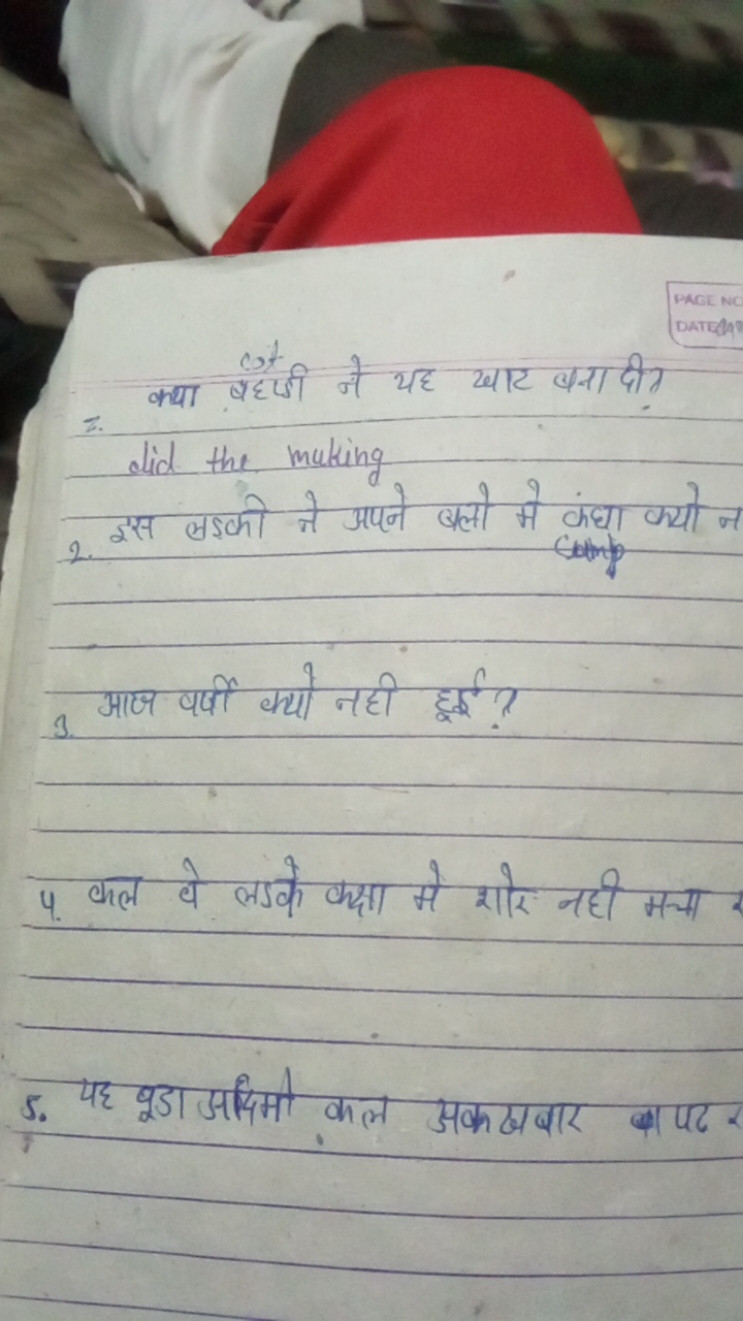 PAGE NO
DATE
cot
1. क्या बढ़ई ने यह खाट बना दी?
did the making
2. इस लडकी ने अपने बलो मे कंघा क्यो न
comp
3. आज वर्षा क्यो नही हुई?
4. कल वे लडके कक्षा मे शोर नही मचा र
5. यह बूडा आदमी कल अकखबार पढ र